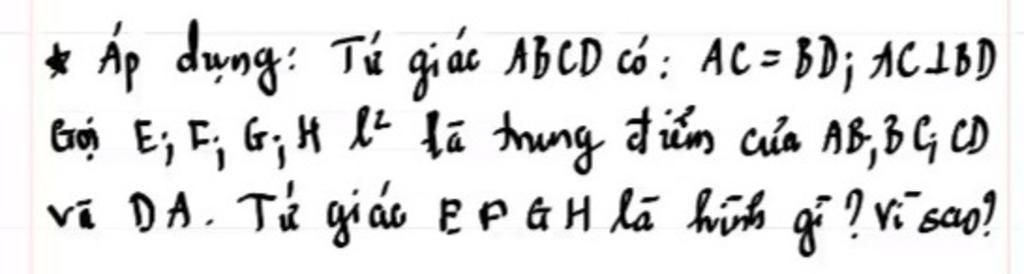 * Áp dụng: Tứ giác ABCD có: AC = BD; AC ⊥ BD
Gọi E; F; G; H l² là trung điểm của AB, BC, CD
và DA. Tứ giác EFGH là hình gì? Vì sao?